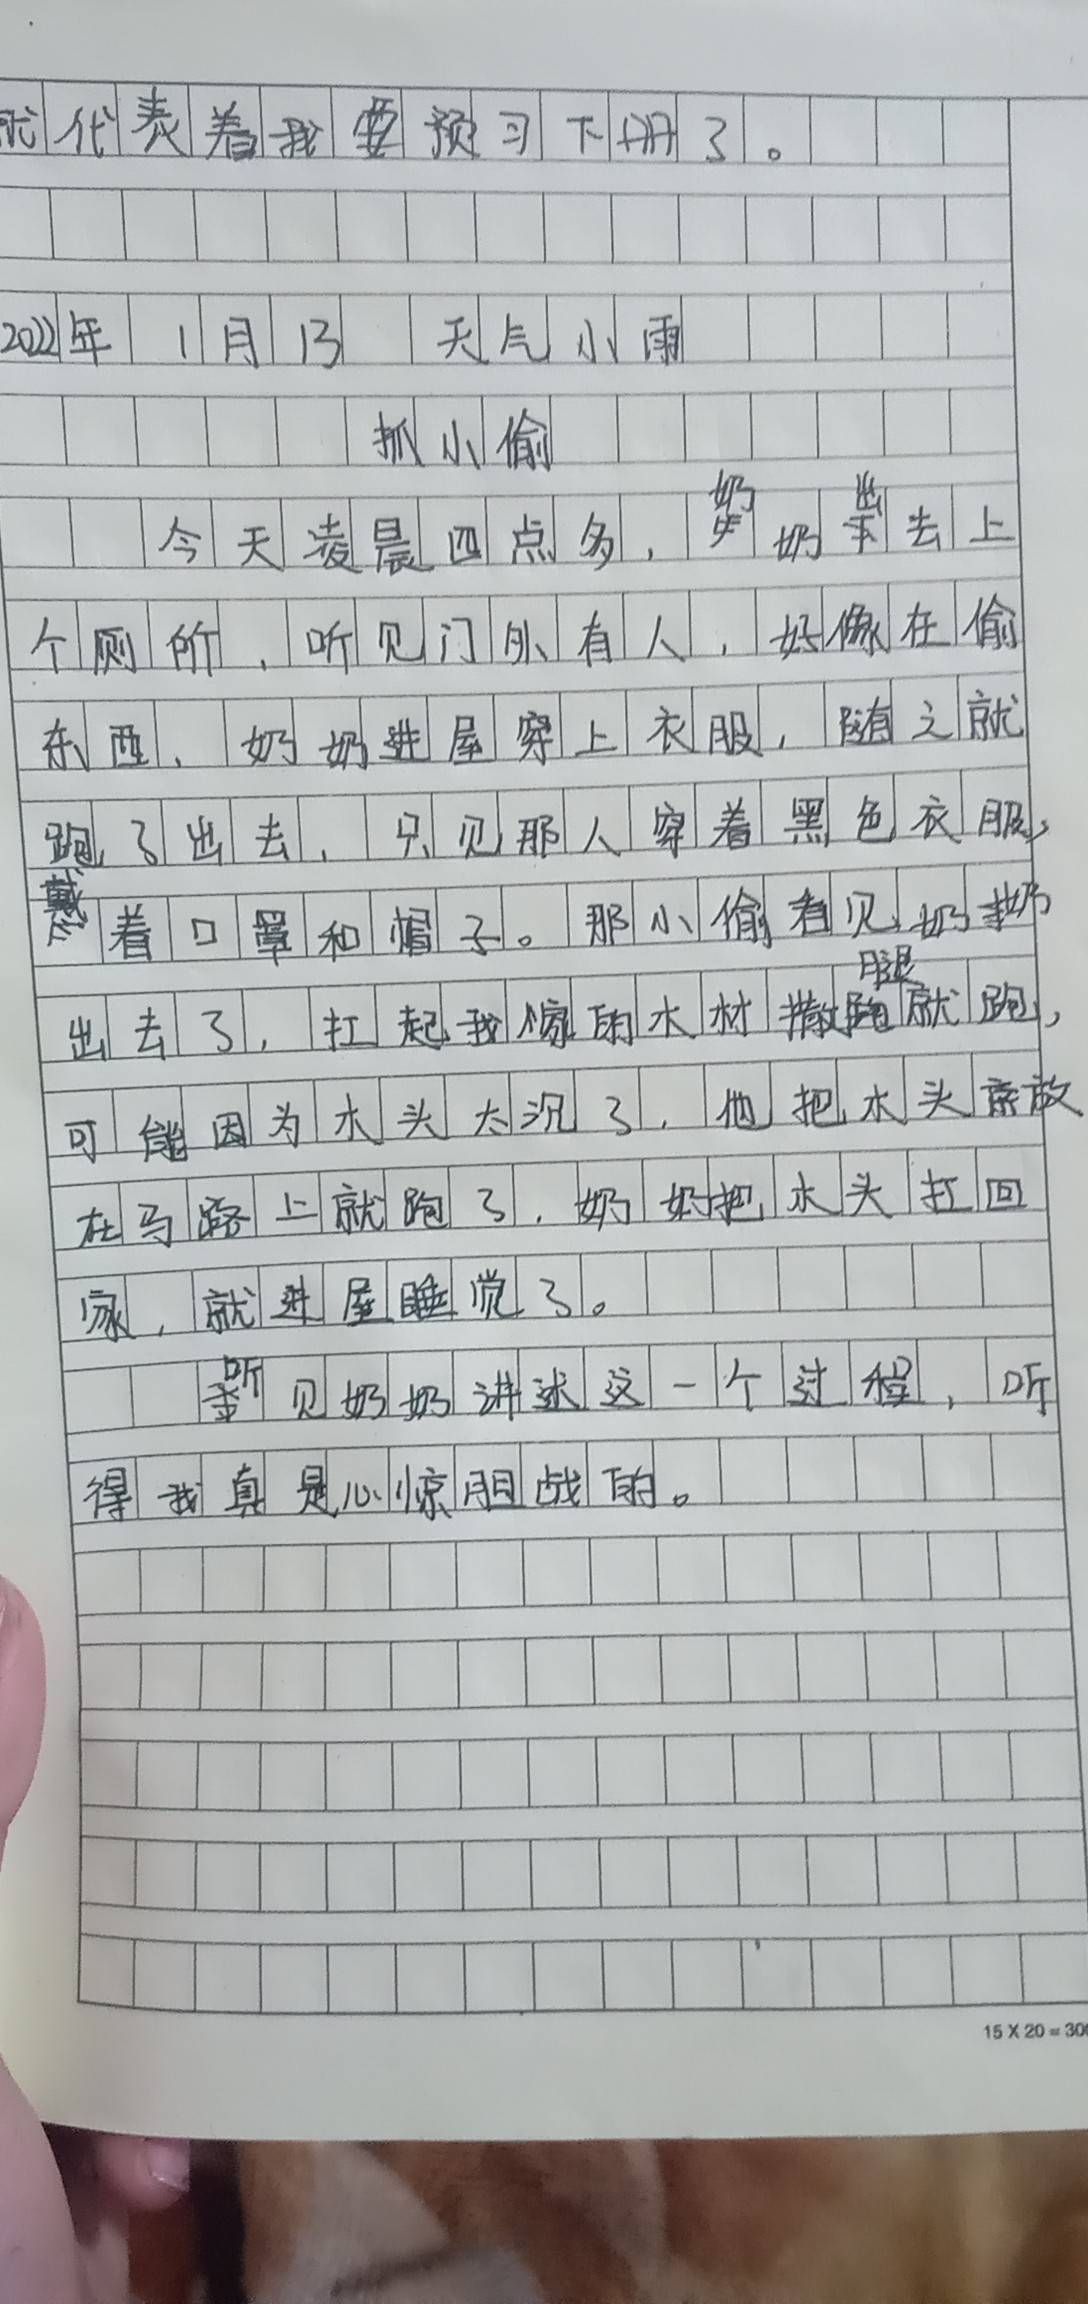 就代表着我要预习下册了。
2022年 1月13 天气小雨
抓小偷
今天凌晨四点多,奶奶出去上
个厕所,听见门外有人,好像在偷
东西,奶奶进屋穿上衣服,随之就
跑了出去,只见那人穿着黑色衣服,
戴着口罩和帽子。那小偷看见奶奶
出去了,扛起我家的木材撒腿就跑,
可能因为木头太沉了,他把木头放
在马路上就跑了,奶奶把木头扛回
家,就进屋睡觉了。
听见奶奶讲述这一个过程,听
得我真是心惊胆战的。
15×20=300